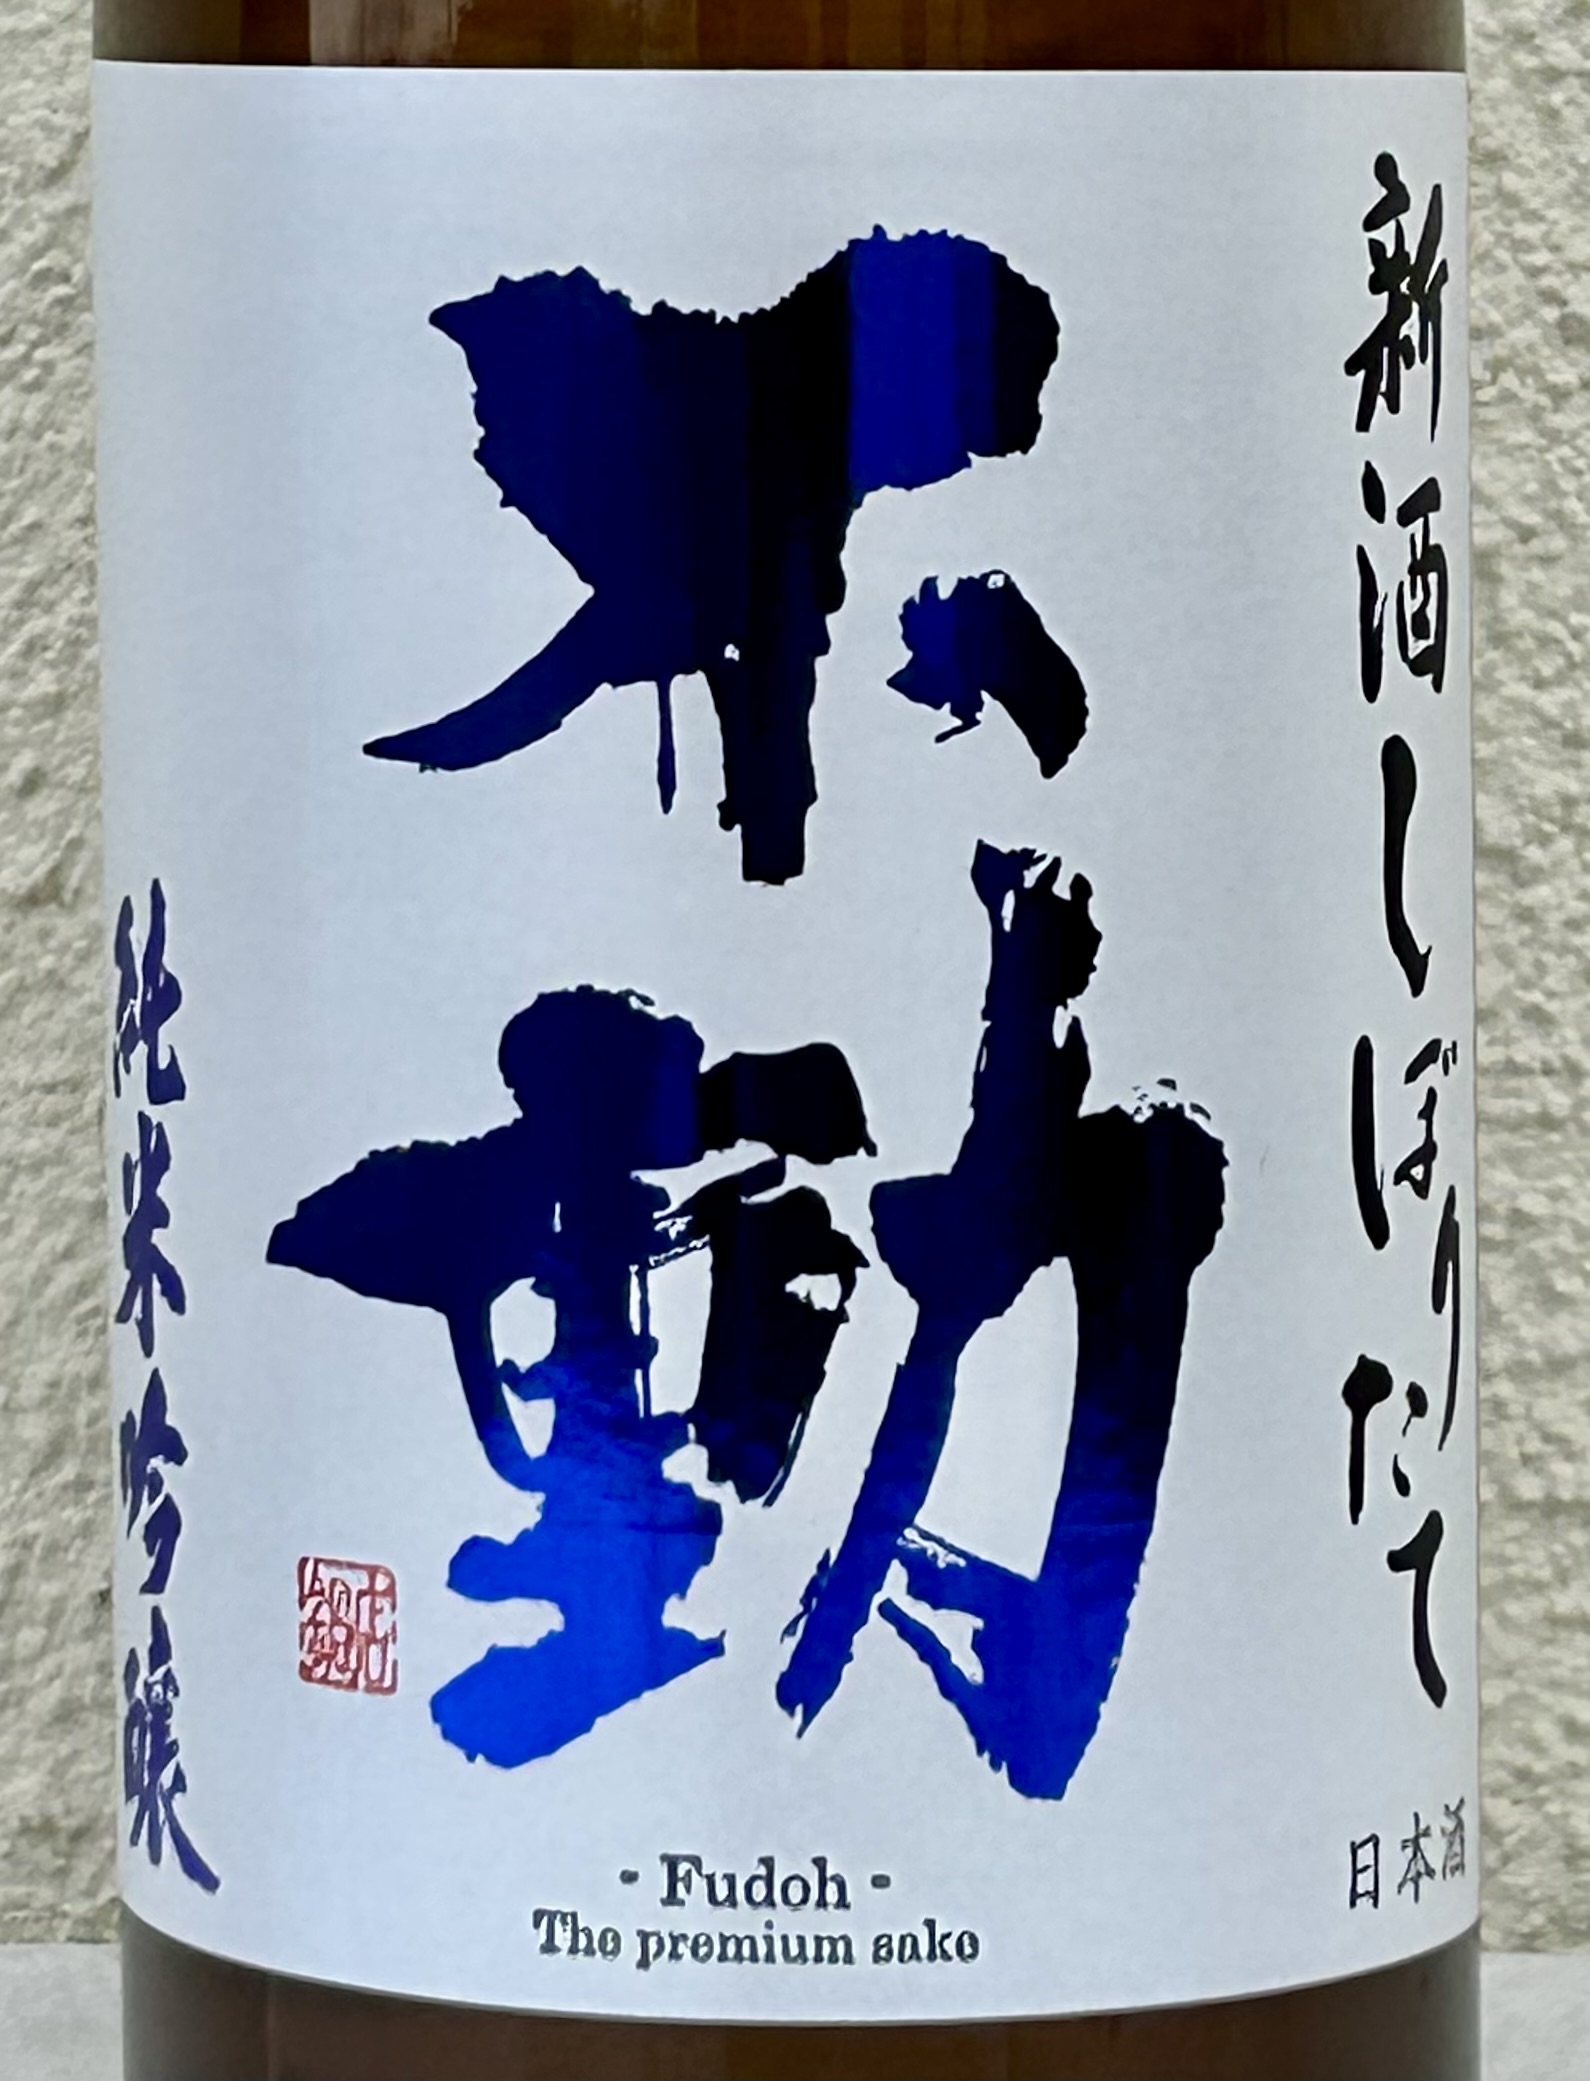 新酒しぼりたて
不動
純米吟醸
- Fudoh -
The premium sake
日本酒